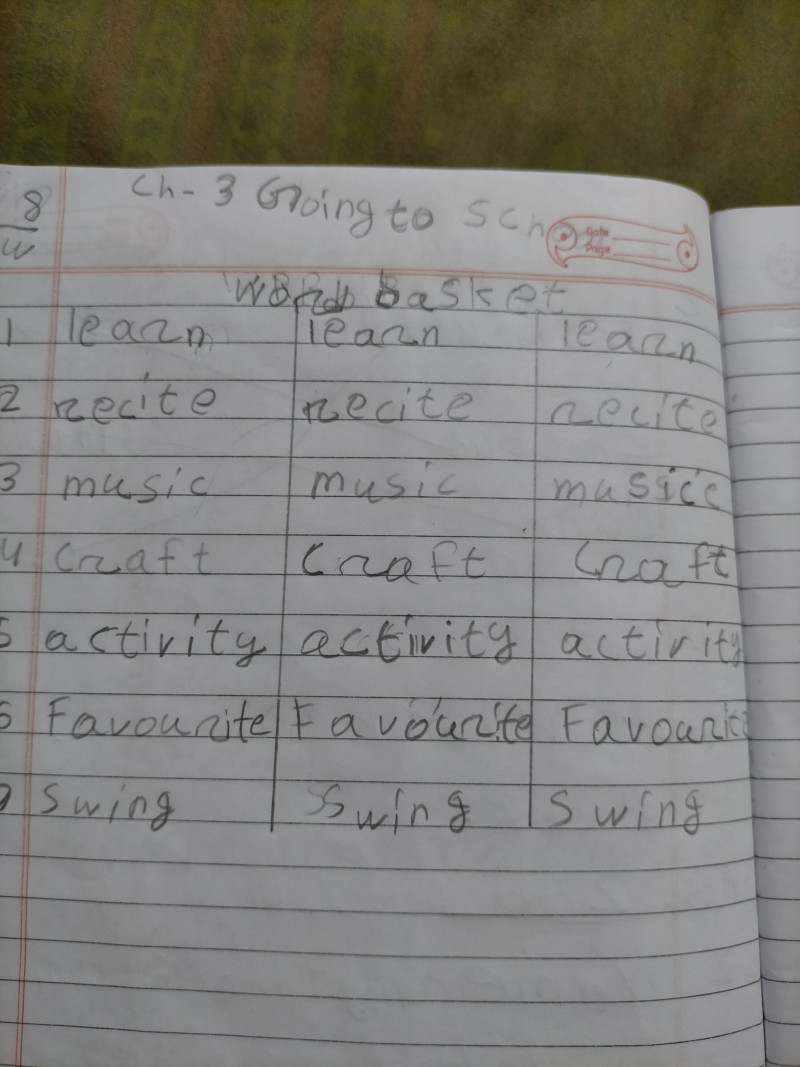 8
W
Ch- 3 Going to Sch
Date
Page
Word basket
1 learn learn learn
2 recite recite recite
3 music music musicc
4 craft craft craft
5 activity activity activity
6 Favourite Favourite Favourite
7 Swing SSwing Swing